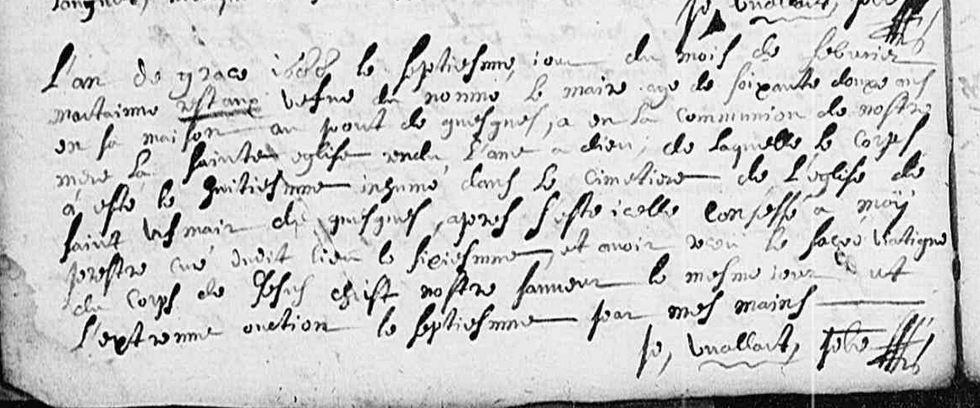 L'an de grace 1668 le septiesme iour du mois de febvrier
martainne restaux vefve du nomme le maire age de soixante douze ans
en sa maison au pont de guesques, a en la communion de nostre
mere la sainte eglise rendu l'ame a dieu, de laquelle le corps
a este le huitiesme inhumé dans le cimetiere de l'eglise de
saint de guesques, apres s'este icelle confessé a moÿ
prestre curé dudit lieu le sixiesme, et avoir receu le sacré viatique
du corps de Jesus christ nostre sauveur le mesme iour et
l'extreme onction le septiesme par mes mains
vuallart, pbre